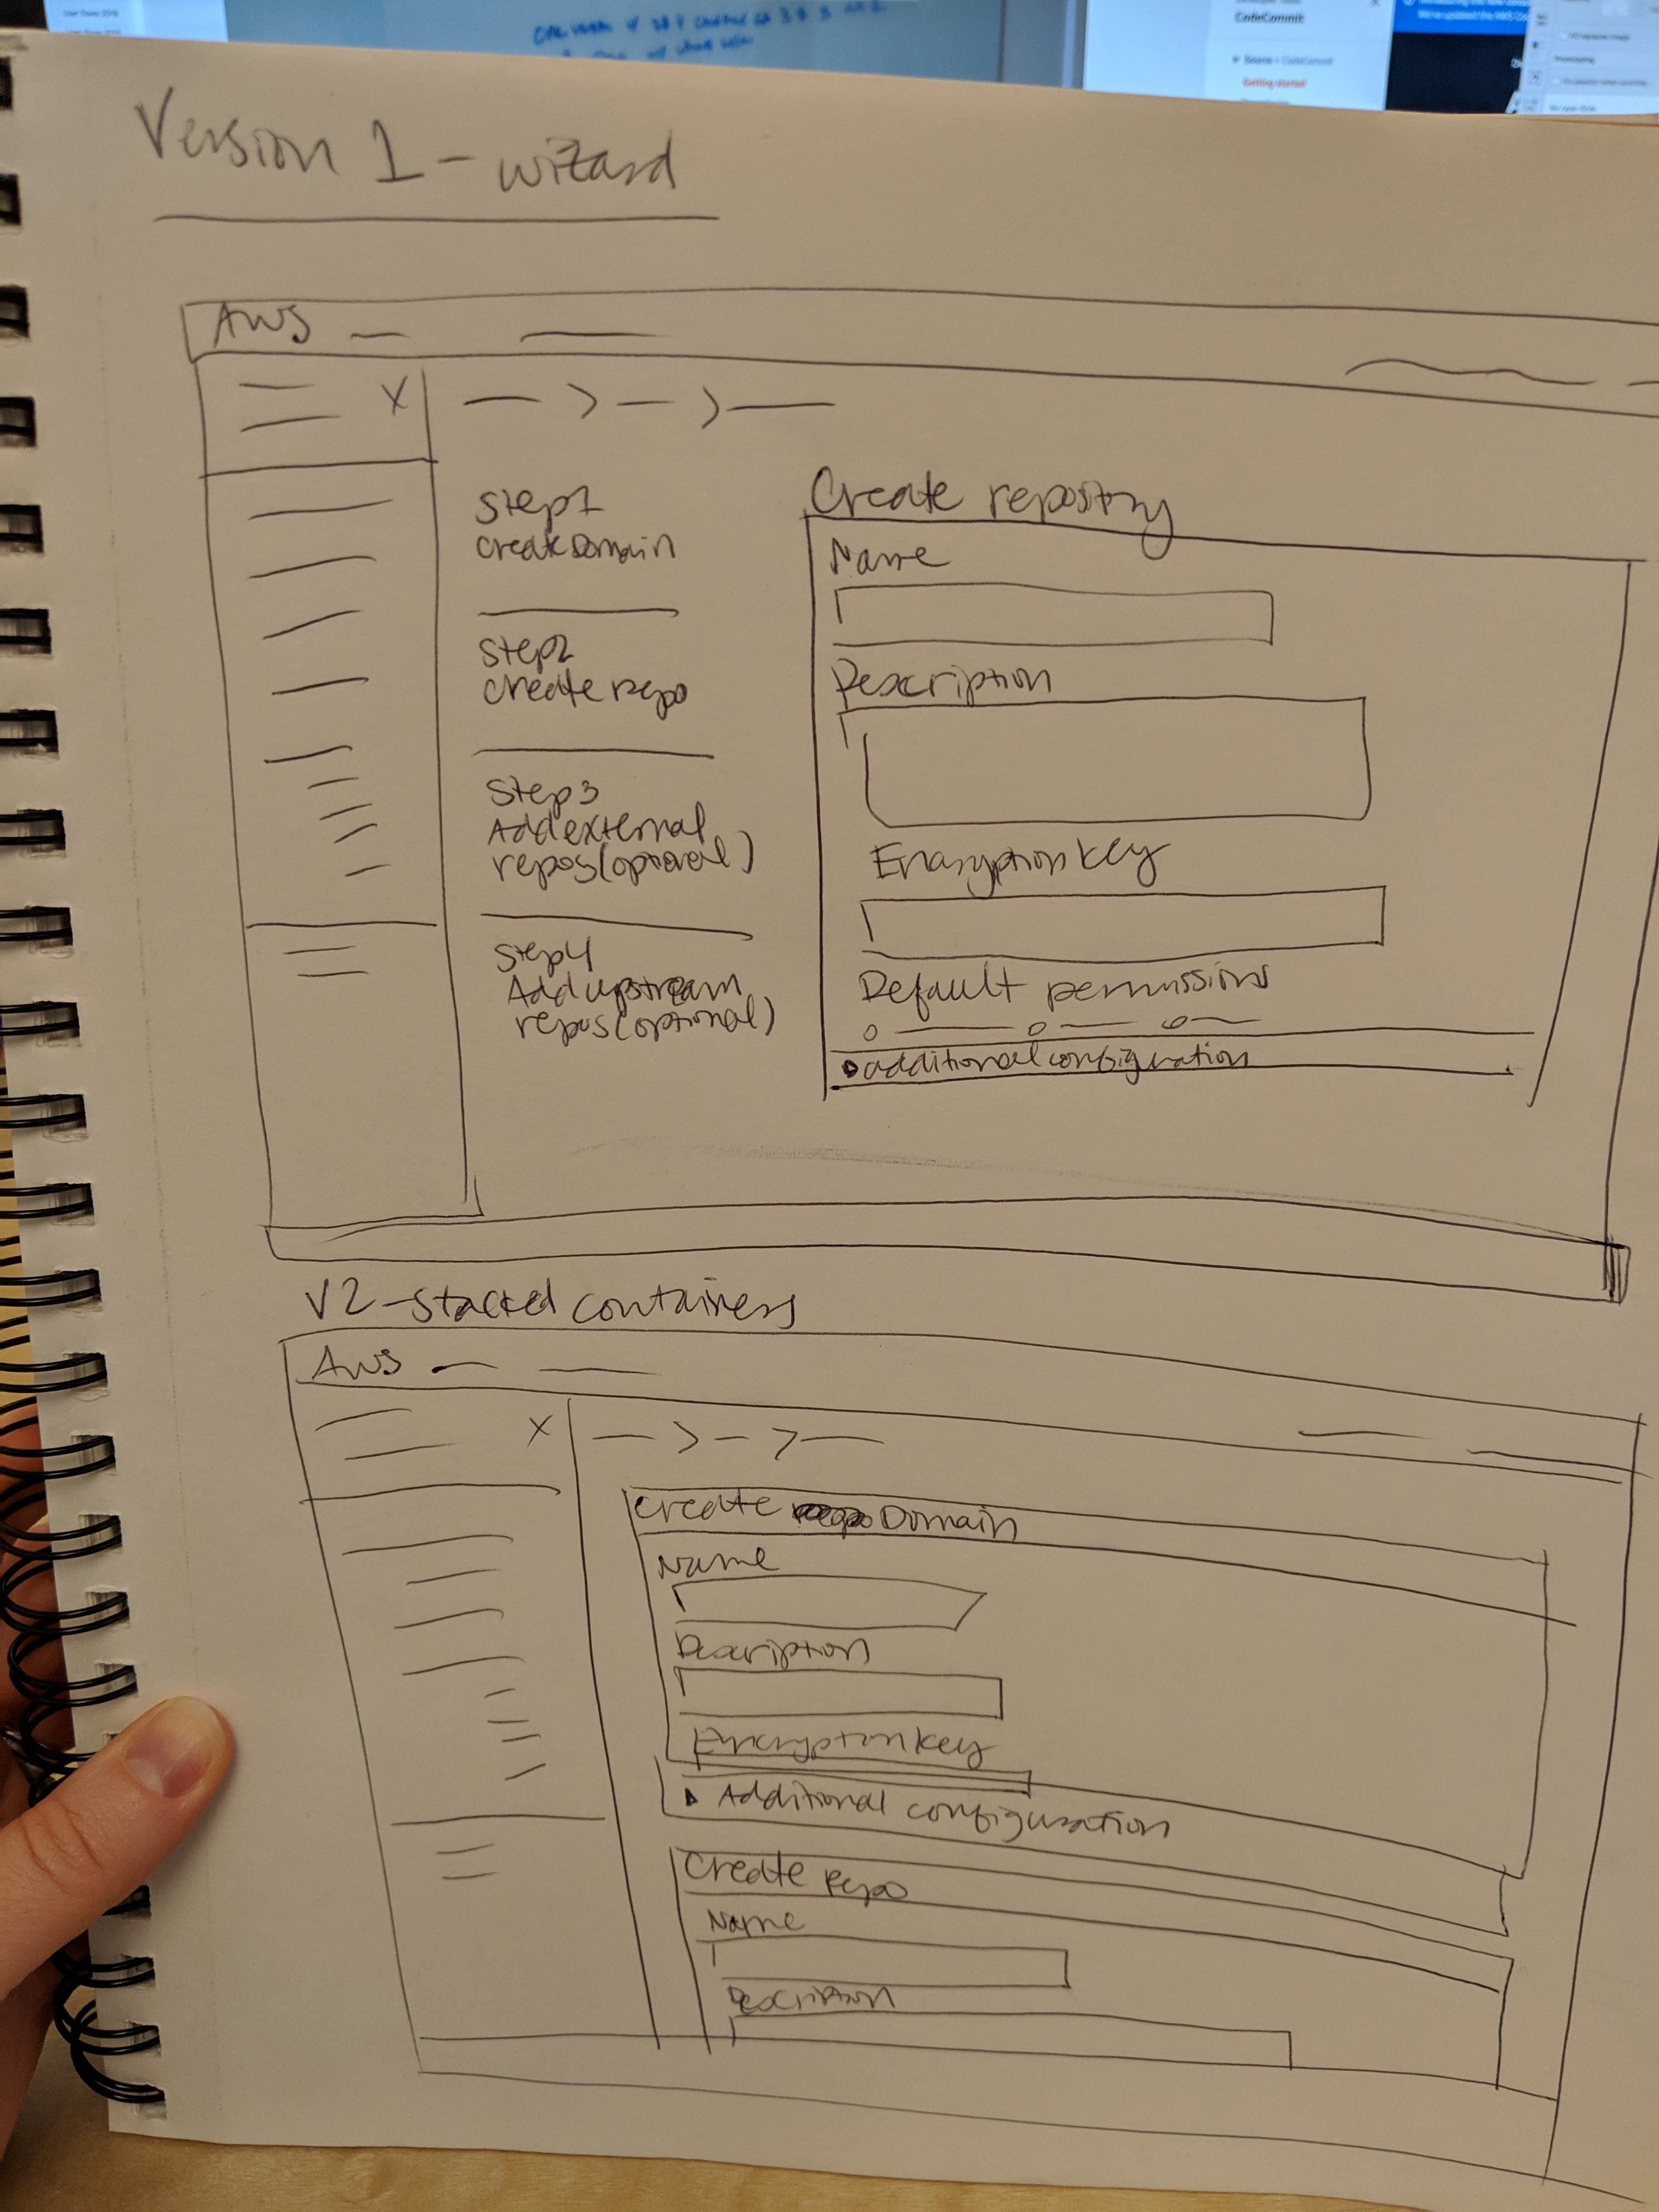 CodeCommit
Source • CodeCommit
Getting started
Version 1 - wizard
AWS
X
Step 1
Create Domain
Step 2
Create repo
Step 3
Add external
repos (optional)
Step 4
Add upstream
repos (optional)
Create repository
Name
Description
Encryption key
Default permissions
additional configuration
V2 - Stacked containers
AWS
X
Create Domain
Name
Description
Encryption key
Additional configuration
Create Repo
Name
Description